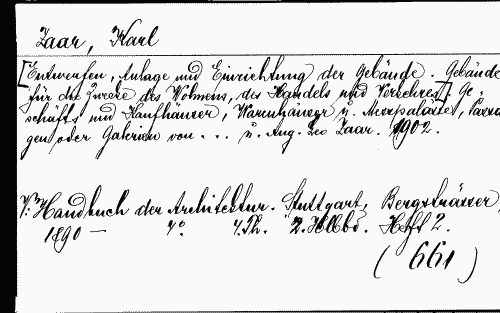 Zaar, Karl
[Entwerfen, Anlage und Einrichtung der Gebäude. Gebäude
für die Zwecke des Wohnens, des Handels und Verkehres]. Ge
schäfts und Kaufhäuser, Warenhäuser u. Messpaläste, Passa
gen oder Galerien von ... u. Aug. Leo Zaar. 1902.
V. Handbuch der Architektur. Stuttgart, Bergsträsser,
1890 — 4°. 4. Th. 2. Hlbbd. Heft 2.
(661)